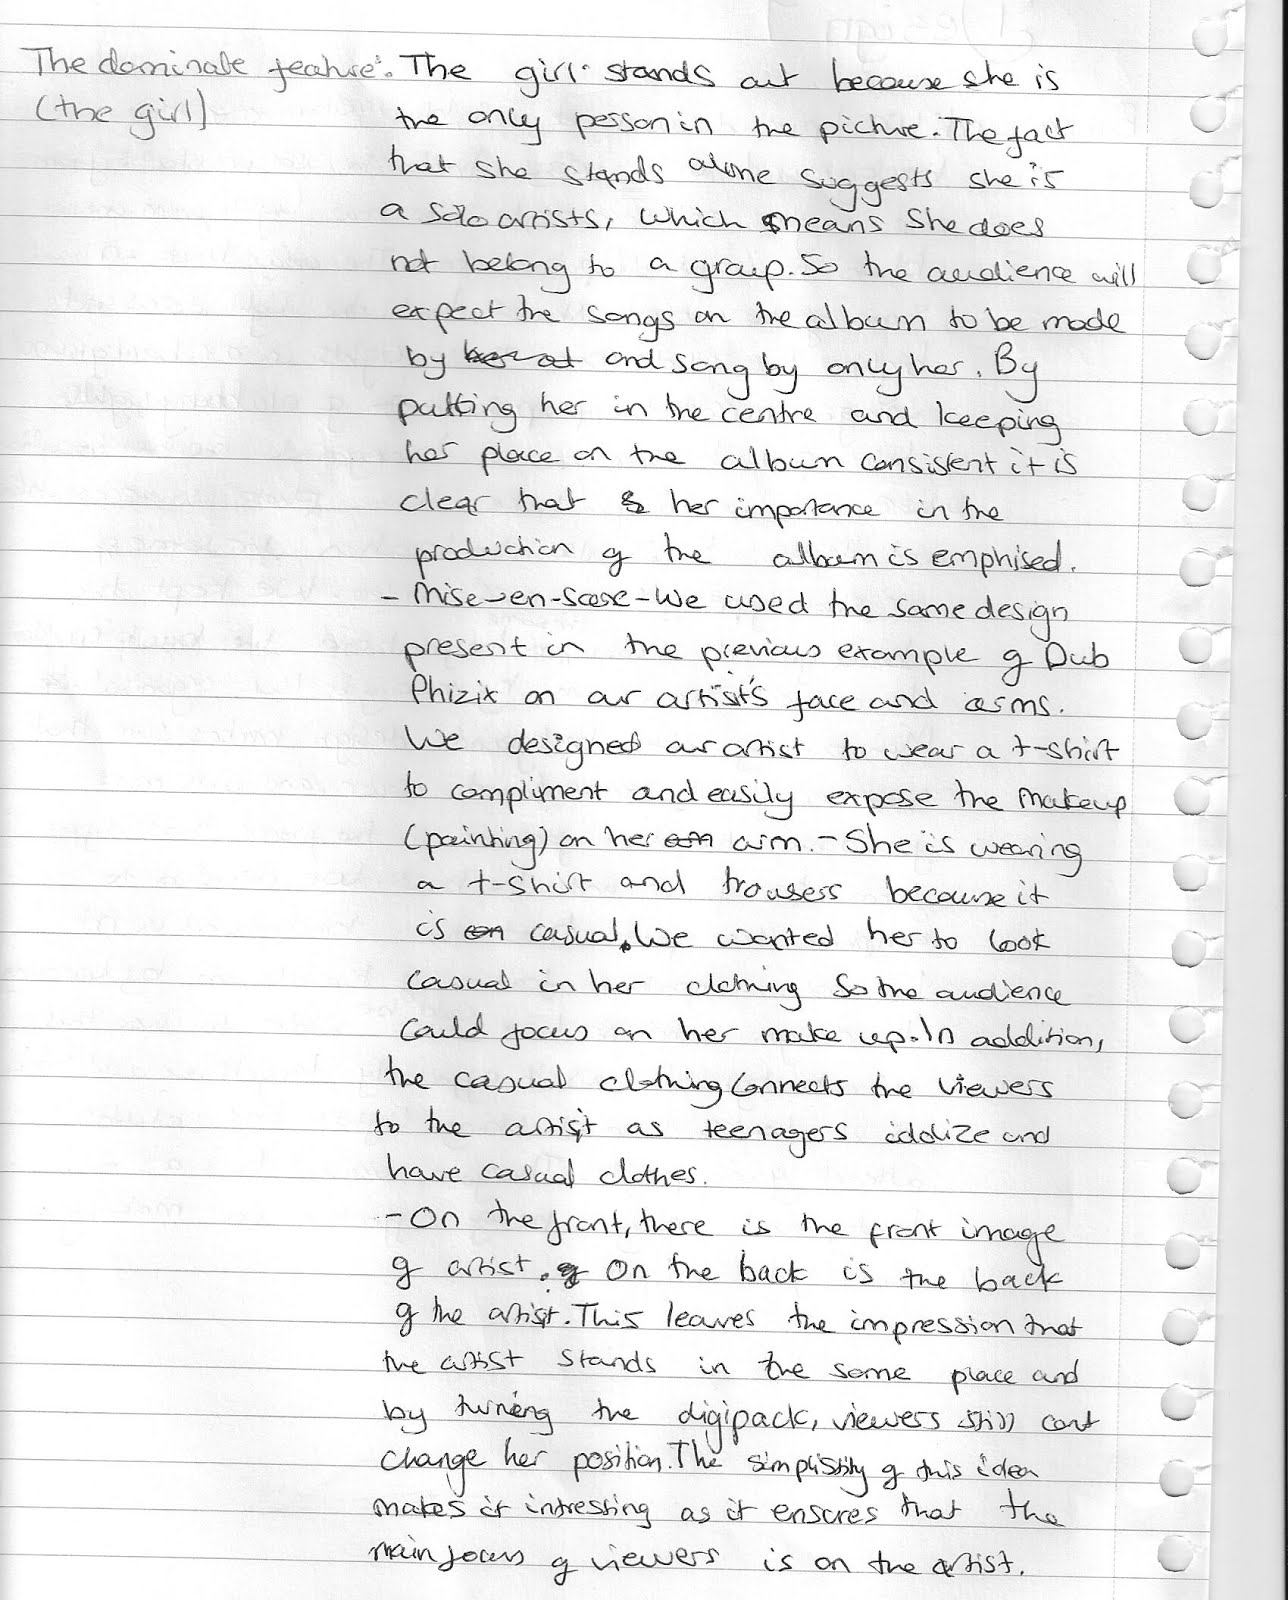 The dominate feature:. The girl stands out because she is
(the girl) the only person in the picture. The fact
that she stands alone suggests she is
a solo artists, which means she does
not belong to a group. So the audience will
expect the songs on the album to be made
by and sang by only her. By
putting her in the centre and keeping
her place on the album consistent it is
clear that her importance in the
production of the album is emphised.
- Mise-en-scese - We used the same design
present in the previous example of Dub
Phizix on our artist's face and arms.
We designed our artist to wear a t-shirt
to compliment and easily expose the makeup
(painting) on her arm. - She is wearing
a t-shirt and trousers because it
is casual. We wanted her to look
casual in her clothing so the audience
could focus on her make up. In addition,
the casual clothing connects the viewers
to the artist as teenagers idolize and
have casual clothes.
- On the front, there is the front image
of artist. On the back is the back
of the artist. This leaves the impression that
the artist stands in the same place and
by turning the digipack, viewers still cant
change her position. The simplistity of this idea
makes it intresting as it ensures that the
main focus of viewers is on the artist.